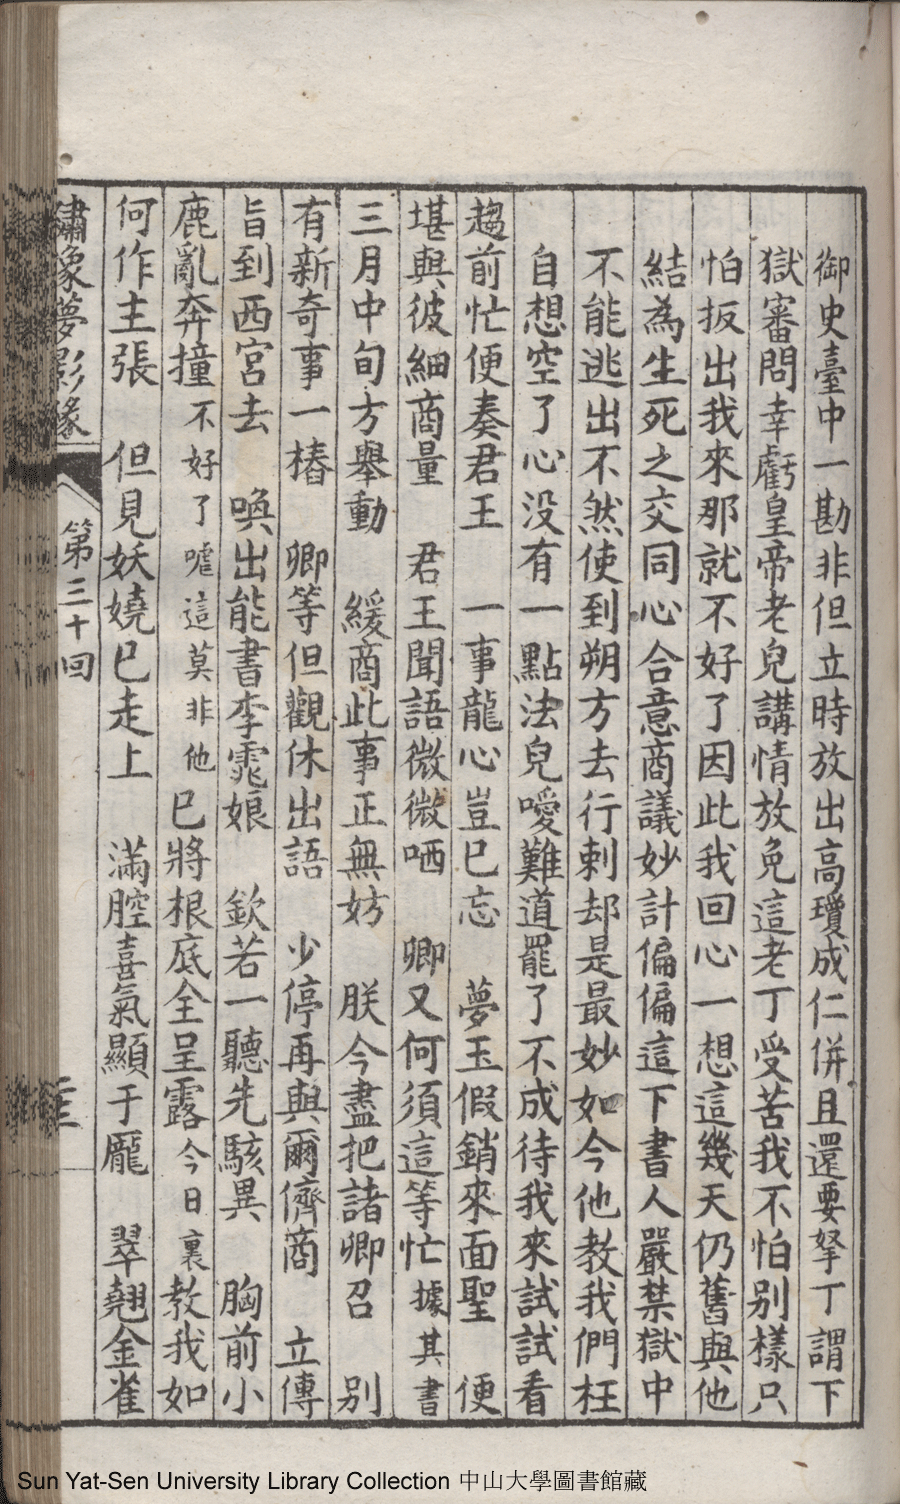 御史臺中一勘非但立時放出高瓊成仁併且還要拏丁謂下
獄審問幸虧皇帝老兒講情放免這老丁受苦我不怕别樣只
怕扳出我來那就不好了因此我回心一想這幾天仍舊與他
結為生死之交同心合意商議妙計偏偏這下書人嚴禁獄中
不能逃出不然使到朔方去行刺却是最妙如今他教我們枉
自想空了心没有一點法兒噯難道罷了不成待我來試試看
趨前忙便奏君王　一事龍心豈已忘　夢玉假銷來面聖　便
堪與彼細商量　君王聞語微微哂　卿又何須這等忙據其書
三月中旬方舉動　緩商此事正無妨　朕今盡把諸卿召　别
有新奇事一樁　卿等但觀休出語　少停再與爾儕商　立傳
旨到西宮去　喚出能書李霓娘　欽若一聽先駭異　胸前小
鹿亂奔撞不好了嘘這莫非他已將根底全呈露今日裏教我如
何作主張　但見妖嬈已走上　滿腔喜氣顯于龐　翠翹金雀
繡像夢影緣
第三十回
Sun Yat-Sen University Library Collection 中山大學圖書館藏